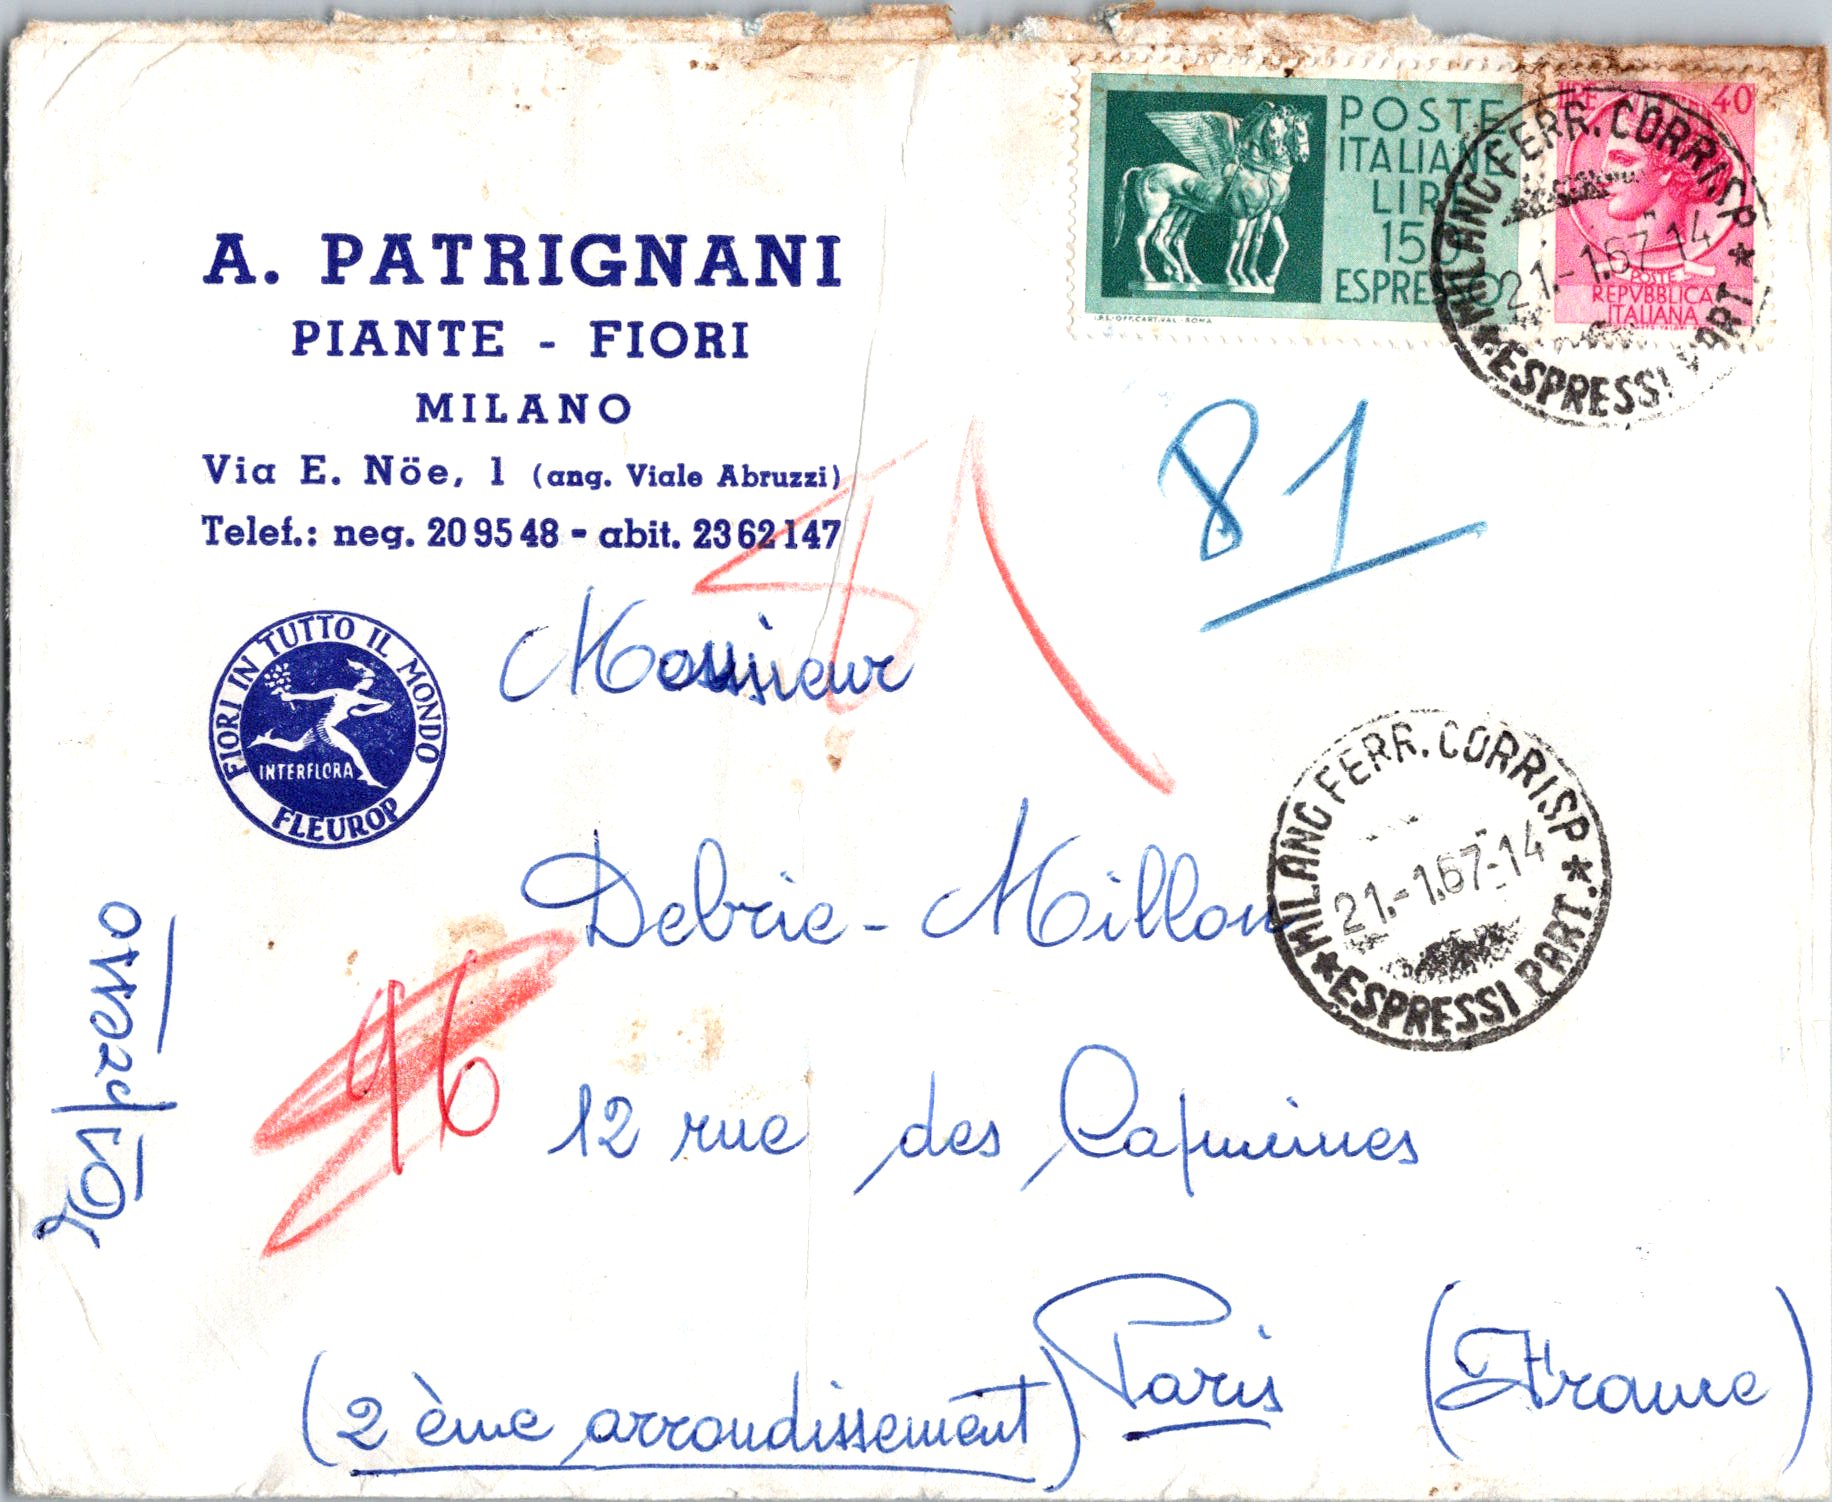 A. PATRIGNANI
PIANTE - FIORI
MILANO
Via E. Nöe, 1 (ang. Viale Abruzzi)
Telef.: neg. 20 95 48 - abit. 23 62 147
FIORI IN TUTTO IL MONDO
INTERFLORA
FLEUROP
POSTE
ITALIANE
LIRE
150
ESPRESSO
I.P.S.-OFF.CART.VAL.-ROMA
LIRE 40
POSTE
REPVBBLICA
ITALIANA
MILANO FERR. CORRISP.
21.-1.67-14
* ESPRESSI PART. *
81
Monsieur
Debrie - Millon
MILANO FERR. CORRISP.
21.-1.67-14
* ESPRESSI PART. *
96
12 rue des Capucines
Paris (France)
(2 ème arrondissement)
Espresso